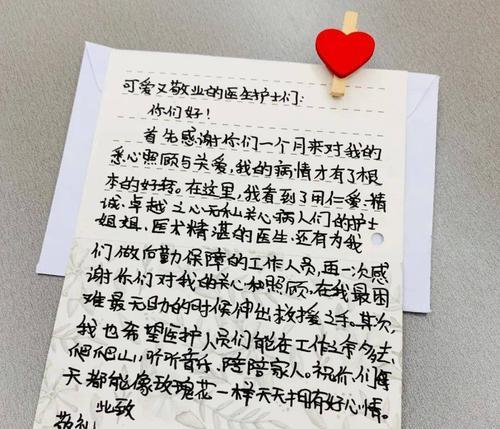 可爱又敬业的医生护士们:
你们好!
首先感谢你们一个月来对我的
悉心照顾与关爱,我的病情才有了根
本的好转。在这里,我看到了用仁爱、精
诚、卓越之心无私关心病人们的护士
姐姐、医术精湛的医生、还有为我
们做后勤保障的工作人员,再一次感
谢你们对我的关心和照顾,在我最困
难最无助的时候伸出救援之手。其次,
我也希望医护人员们能在工作之余多去
爬爬山、听听音乐、陪陪家人。祝你们每
天都能像玫瑰花一样天天拥有好心情。
此致
敬礼